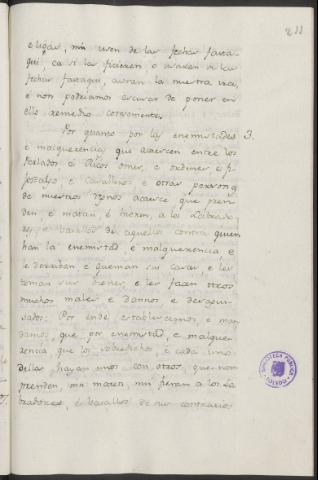 211
e ligas, nin usen de las fechas fasta
qui, ca si las ficieren o usaren de las
fechas fastaqui, avran la nuestra ira,
e non podriamos escusar de poner en
ello remedio
Por quanto por las enemistades 3.
e malquerencias que acaescen entre los
Perlados é Ricos omes, e ordenes e fi-
josdalgo, e cavalleros e otras personas
de nuestros Regnos acaesce que pren-
den é matan, é fieren, a los Labrado-
res e vasallos de aquellos contra quien
han la enemistad e malquerencia e
les derriban e queman sus casas e les
toman sus bienes, e les fazen otros
muchos males e dannos e desagui-
sados: Por ende establescemos, e man-
damos, que por enemistad, e malque-
rencia que los sobredichos, e cada uno
dellos hayan unos con otros, que non
prenden, nin maten, nin fieran a los La-
bradores, é vasallos de sus contrarios
BIBLIOTECA PUBLICA
TOLEDO